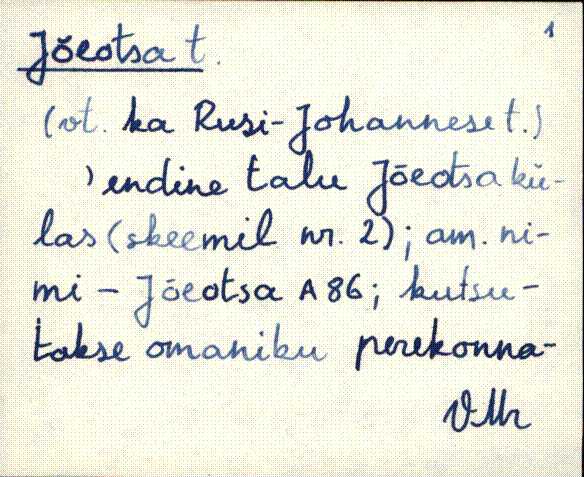 1
Jõeotsa t.
(vt. ka Rusi-Johannese t.)
) endine talu Jõeotsa kü-
las (skeemil nr. 2); am. ni-
mi - Jõeotsa A 86; kutsu-
takse omaniku perekonna-
VMr